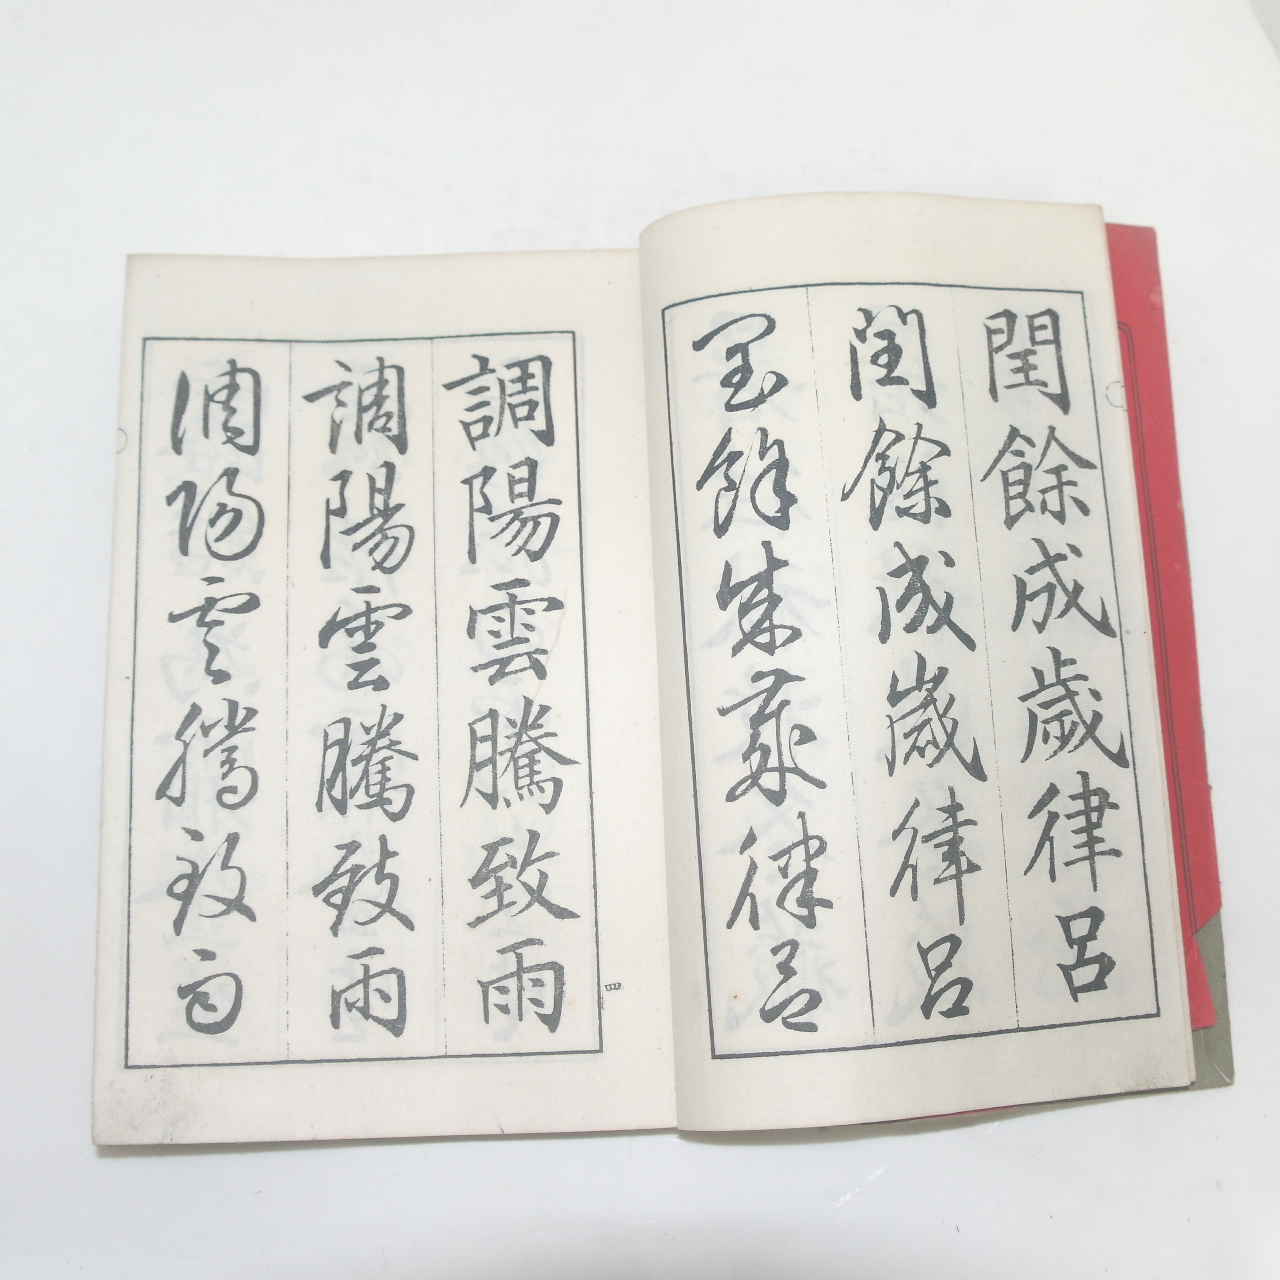 閏餘成歲律呂
閏餘成歲律呂
閏餘成歲律呂
調陽雲騰致雨
調陽雲騰致雨
調陽雲騰致雨
四